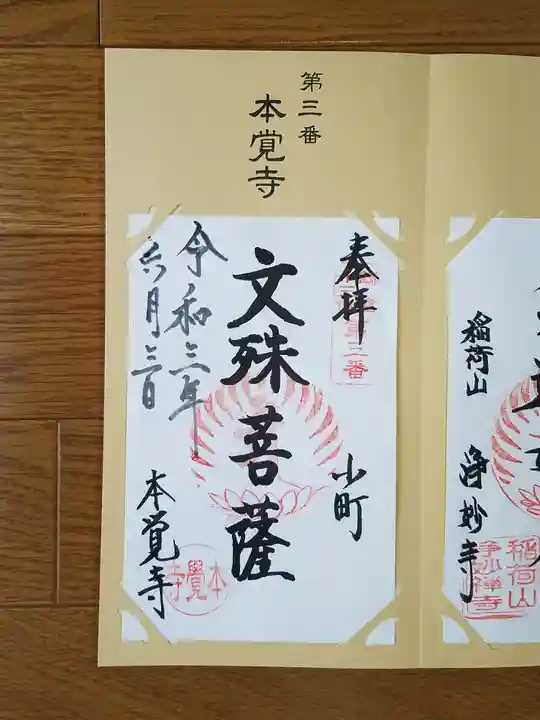 第三番
本覚寺
奉拝
第三番
小町
文殊菩薩
令和三年
六月三日
本覚寺
本覺寺
稲荷山
浄妙寺
稲荷山
浄妙禅寺